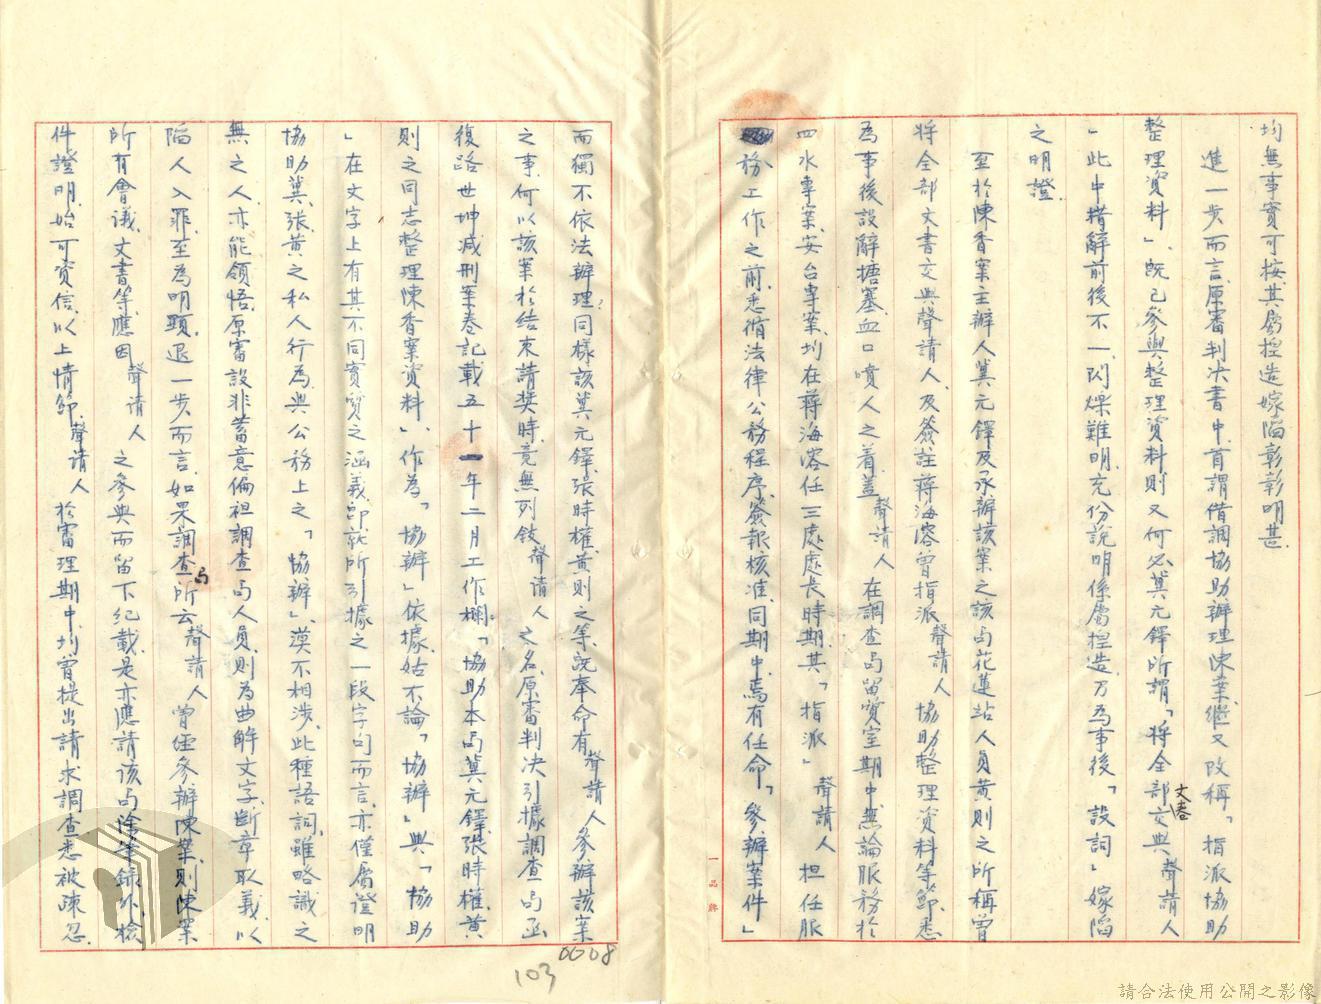 均無事實可按其屬揑造嫁陷彰彰明甚.
進一步而言.原審判決書中.首謂借調協助辦理陳案.繼又改稱「指派協助
整理資料」、既已參與整理資料則又何必冀元鐸所謂「將全部文卷交與聲請人
」此中措辭前後不一.閃爍難明.充份說明係屬揑造.万為事後「設詞」嫁陷
之明證.
至於陳香案主辦人冀元鐸及承辦該案之該局花蓮站人員黃則之所稱曾
將全部文書交與聲請人.及簽註蔣海溶曾指派聲請人協助整理資料等節.悉
為事後設辭搪塞.血口噴人之着.蓋聲請人在調查局留質室期中.無論服務於
四水專案.安台專案.均在蔣海溶任三處處長時期.其「指派」聲請人担任服
務工作之前.悉循法律公務程序.簽報核准.同期中.焉有任命「參辦案件」
而獨不依法辦理?同樣該冀元鐸.張時權.黃則之等.既奉命有聲請人參辦該案
之事.何以該案於結束請獎時.竟無列敍聲請人之名.原審判决引據調查局函
復路世坤减刑案卷記載五十一年二月工作欄:「協助本局冀元鐸.張時權.黃
則之同志整理陳香案資料」、作為「協辦」依據.姑不論「協辦」與「協助
」在文字上有其不同實質之涵義.卽就所引據之一段字句而言.亦僅屬證明
協助冀.張.黃之私人行為.與公務上之「協辦」漠不相涉.此種語詞.雖略識之
無之人.亦能領悟.原審設非蓄意偏袒調查局人員.則為曲解文字.斷章取義.以
陷人入罪.至為明顯.退一步而言.如果調查局所云聲請人曾經參辦陳案.則陳案
所有會議.文書等.應因聲請人之參與而留下紀載.是亦應請該局徐筆錄外.檢
件證明.始可資信.以上情節.聲請人於審理期中.均曾提出請求調查.悉被疎忽.
一品牌
0008
103
請合法使用公開之影像